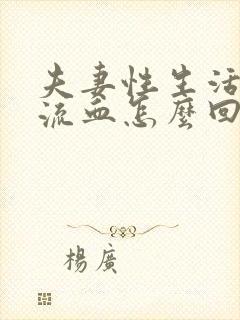 夫妻性生活
流血怎麼回
楊廣